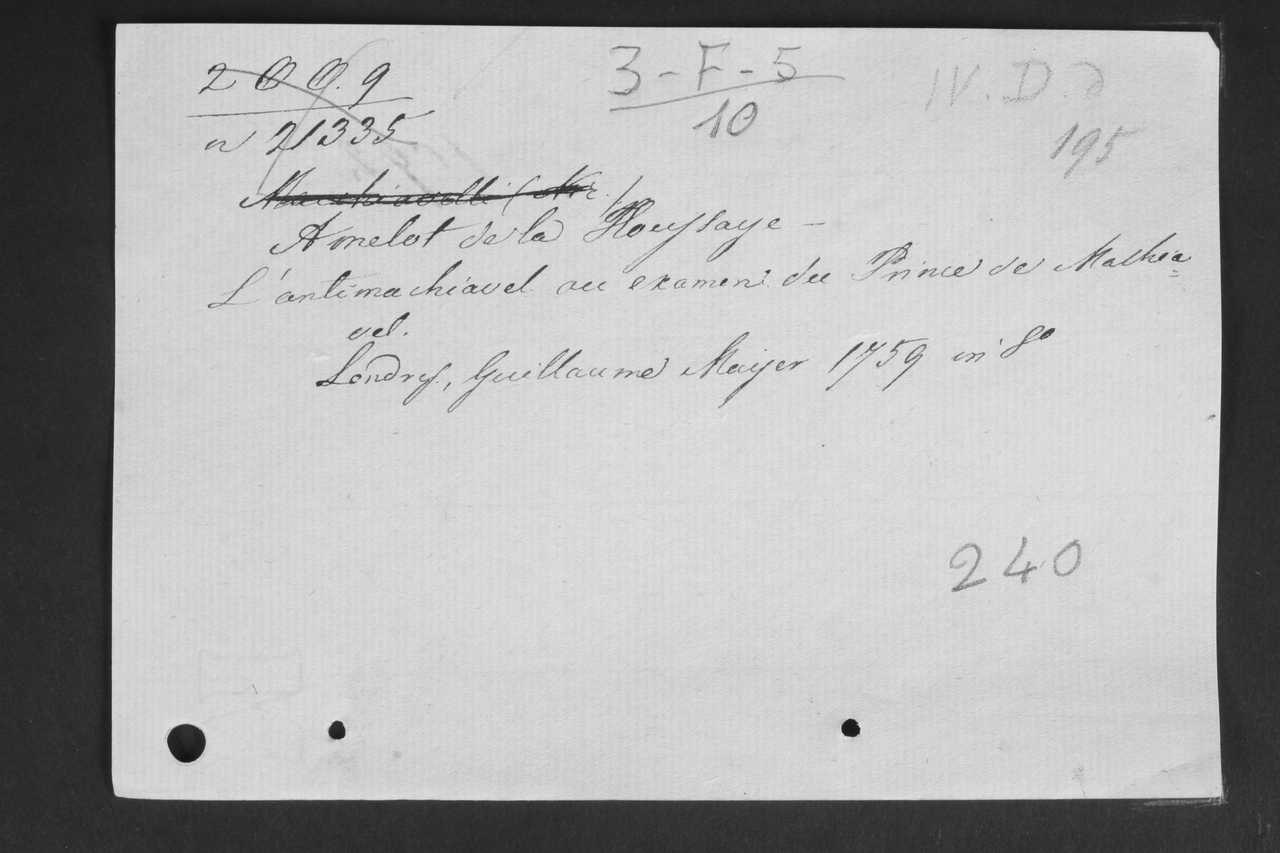 2 Q Q. 9
n 21335
3-F-5
10
IV. D. d
195
Macchiavelli (Nic.)
Amelot de la Houssaye —
L'antimachiavel ou examen du Prince de Malhia=
vel.
Londres, Guillaume Meijer 1759 in 8º
240